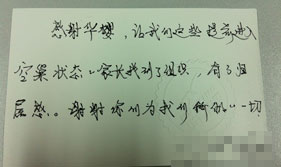 感谢华樱，让我们这些提前进入
空巢状态的家长找到了组织，有了归
属感。谢谢你们为我们所做的一切